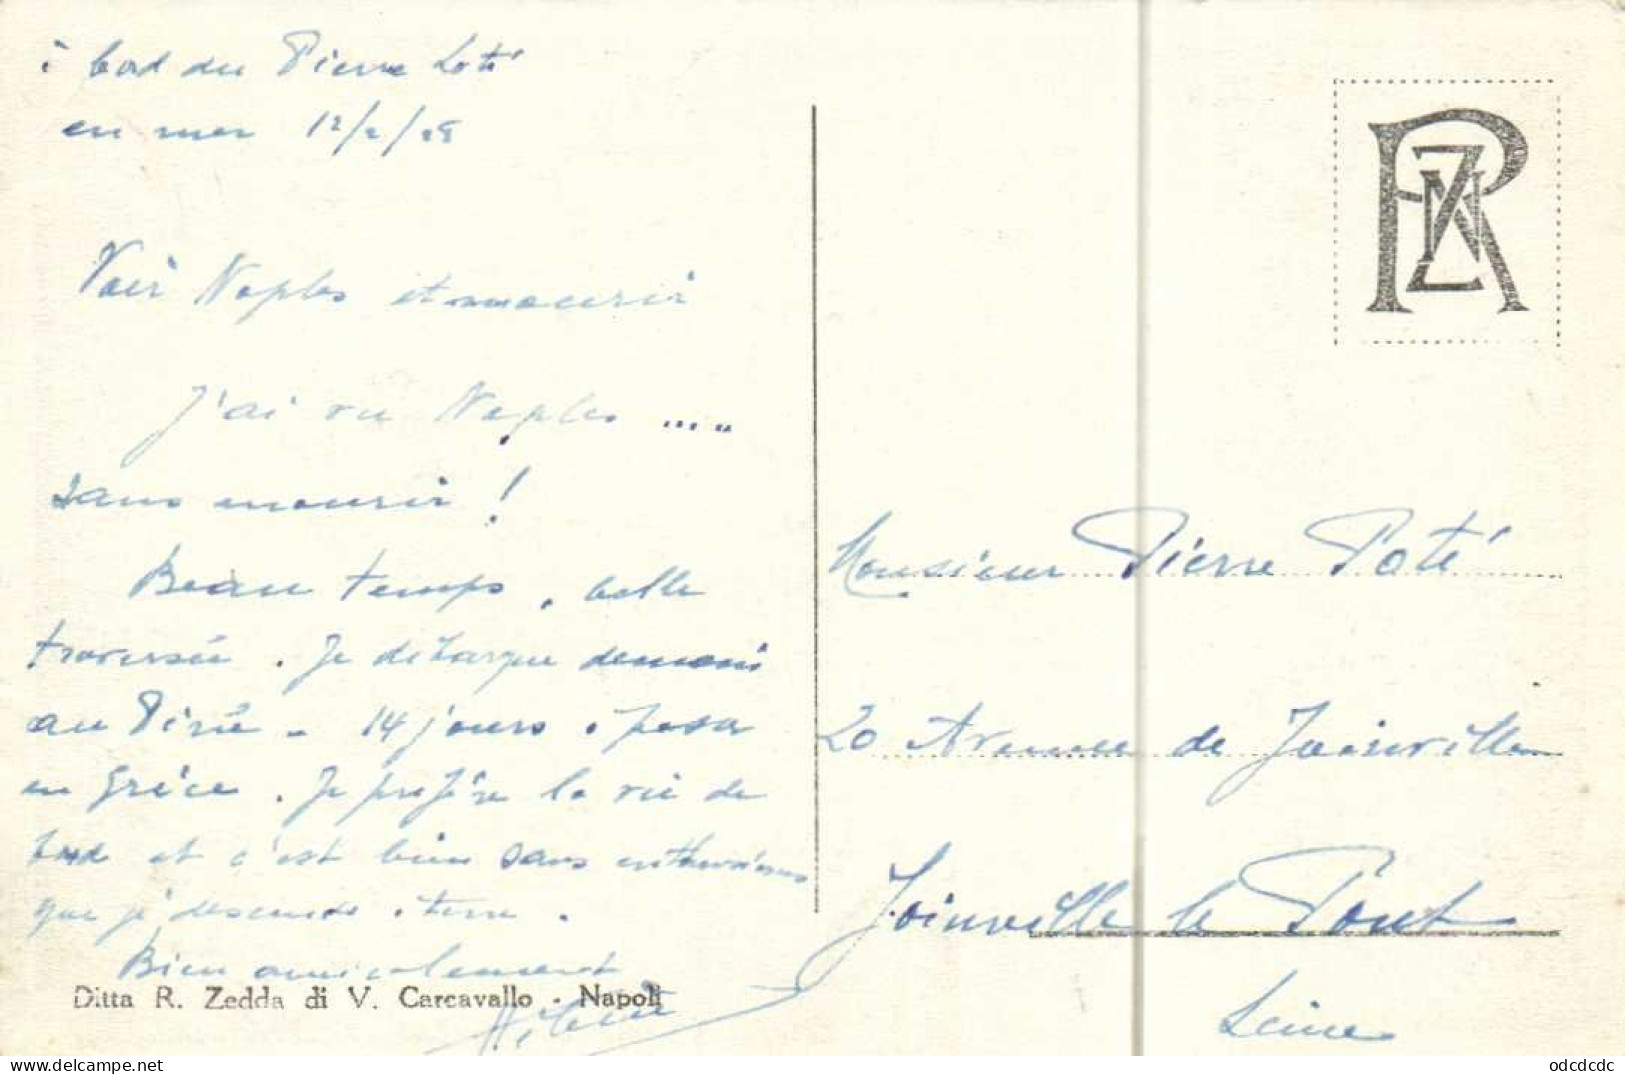 à bord du Pierre Loti
en mer 12/2/28
Voir Naples et mourir
J'ai vu Naples .....
sans mourir !
Beau temps, belle
traversée. Je débarque demain
au Pirée - 14 jours à passer
en Grèce. Je préfère la vie de
bord et c'est bien sans enthousiasme
que je descends à terre.
Bien amicalement
Ditta R. Zedda di V. Carcavallo - Napoli
RZN
Monsieur Pierre Poté
20 Avenue de Joinville
Joinville le Pont
Seine
odcdcdc